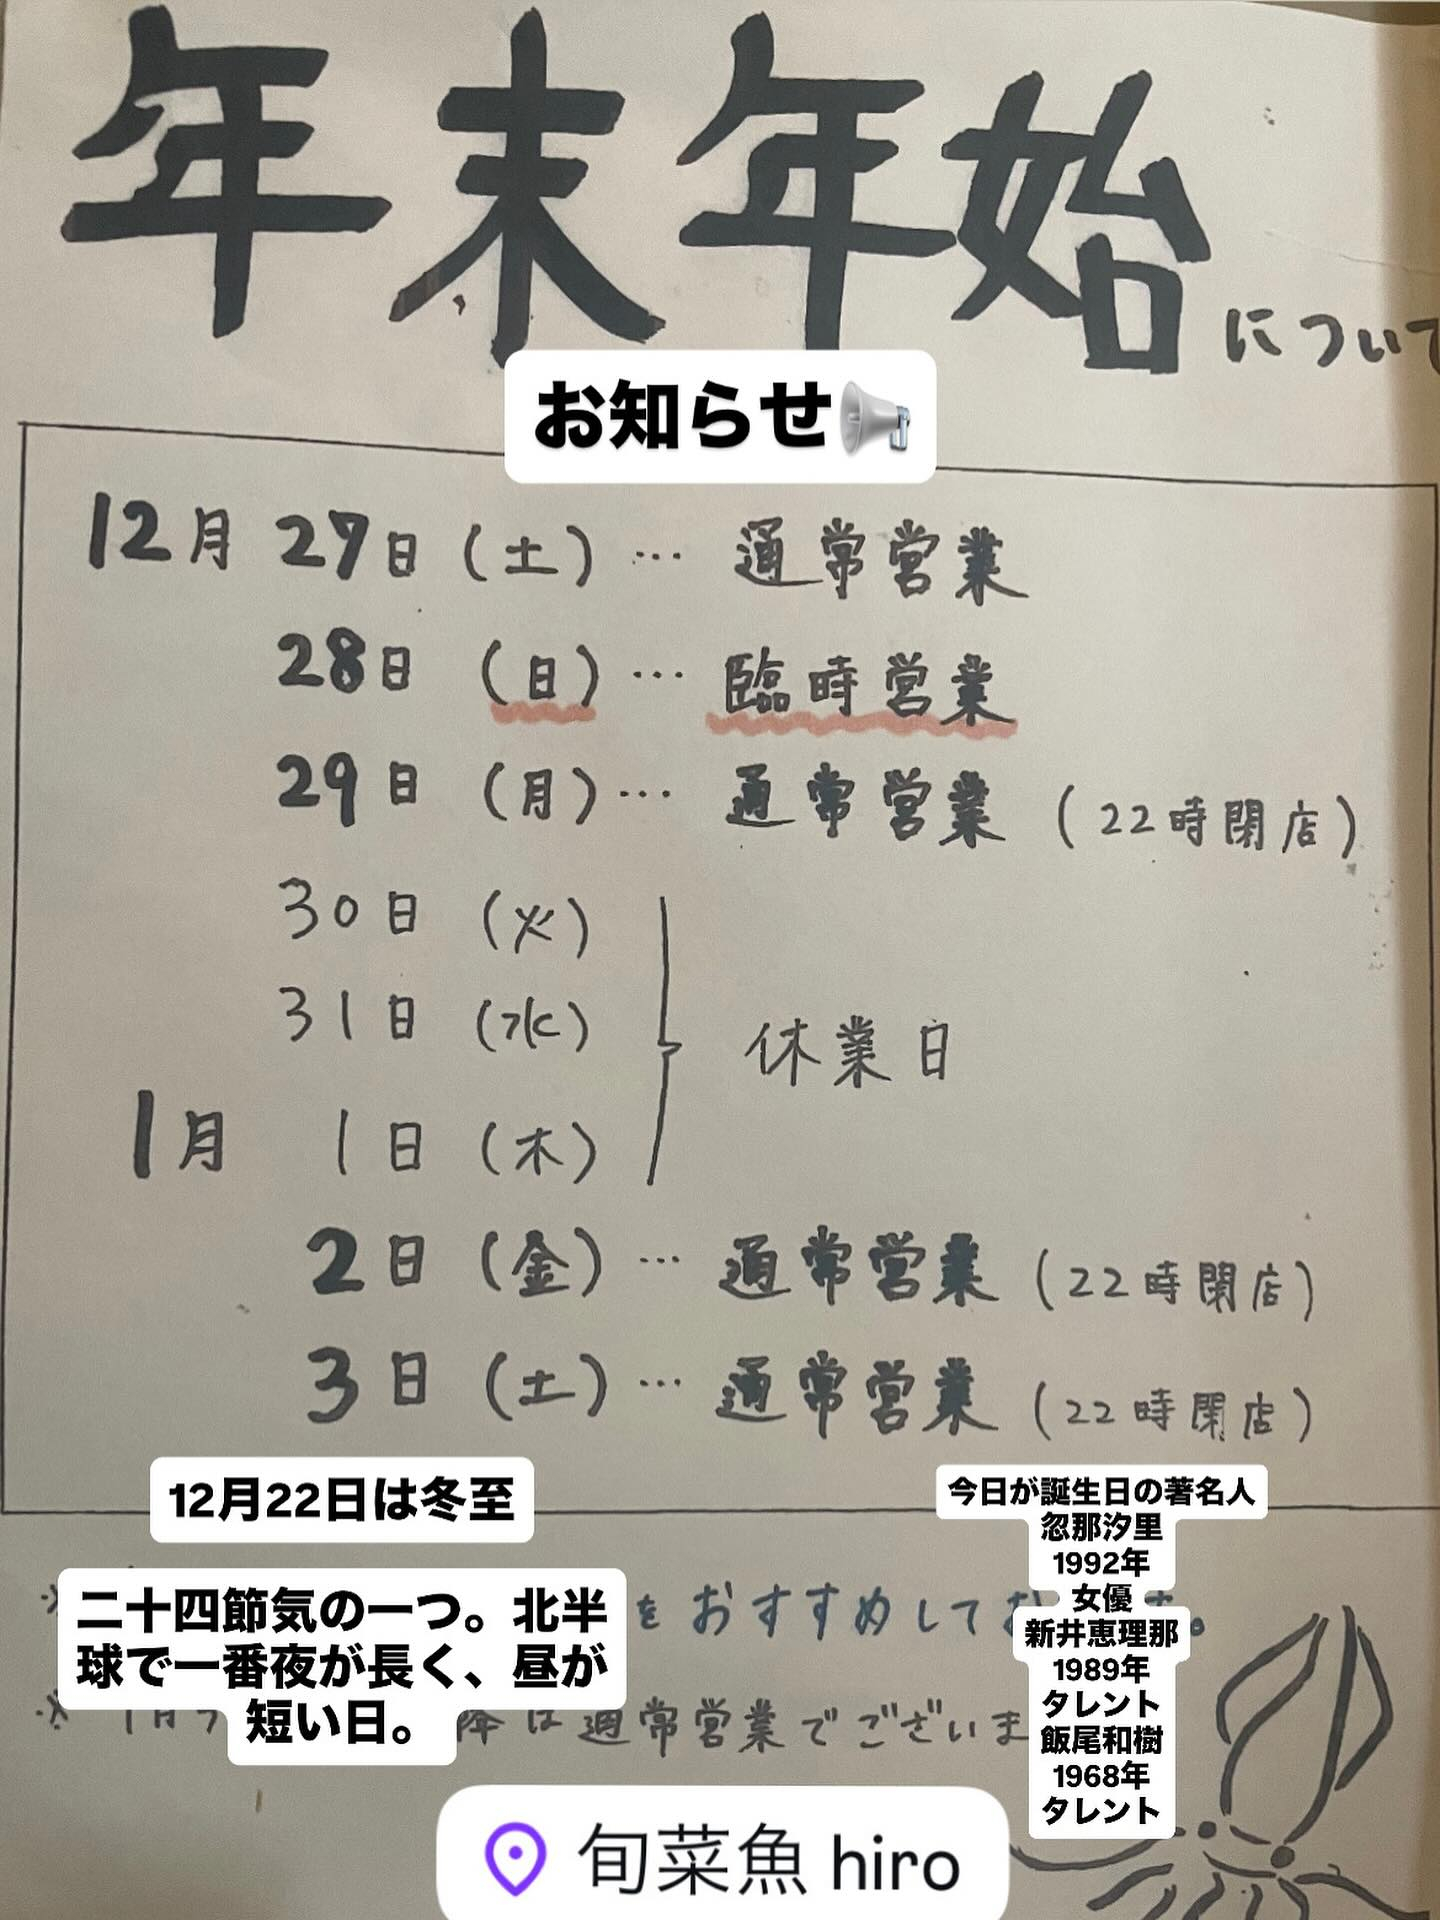 年末年始について
お知らせ📢
12月27日(土)…通常営業
28日(日)…臨時営業
29日(月)…通常営業(22時閉店)
30日(火)
31日(水)
休業日
1月1日(木)
2日(金)…通常営業(22時閉店)
3日(土)…通常営業(22時閉店)
12月22日は冬至
二十四節気の一つ。北半
球で一番夜が長く、昼が
短い日。
今日が誕生日の著名人
忽那汐里
1992年
女優
新井恵理那
1989年
タレント
飯尾和樹
1968年
タレント
※
をおすすめして
。
※1月
降は通常営業でございま
旬菜魚 hiro